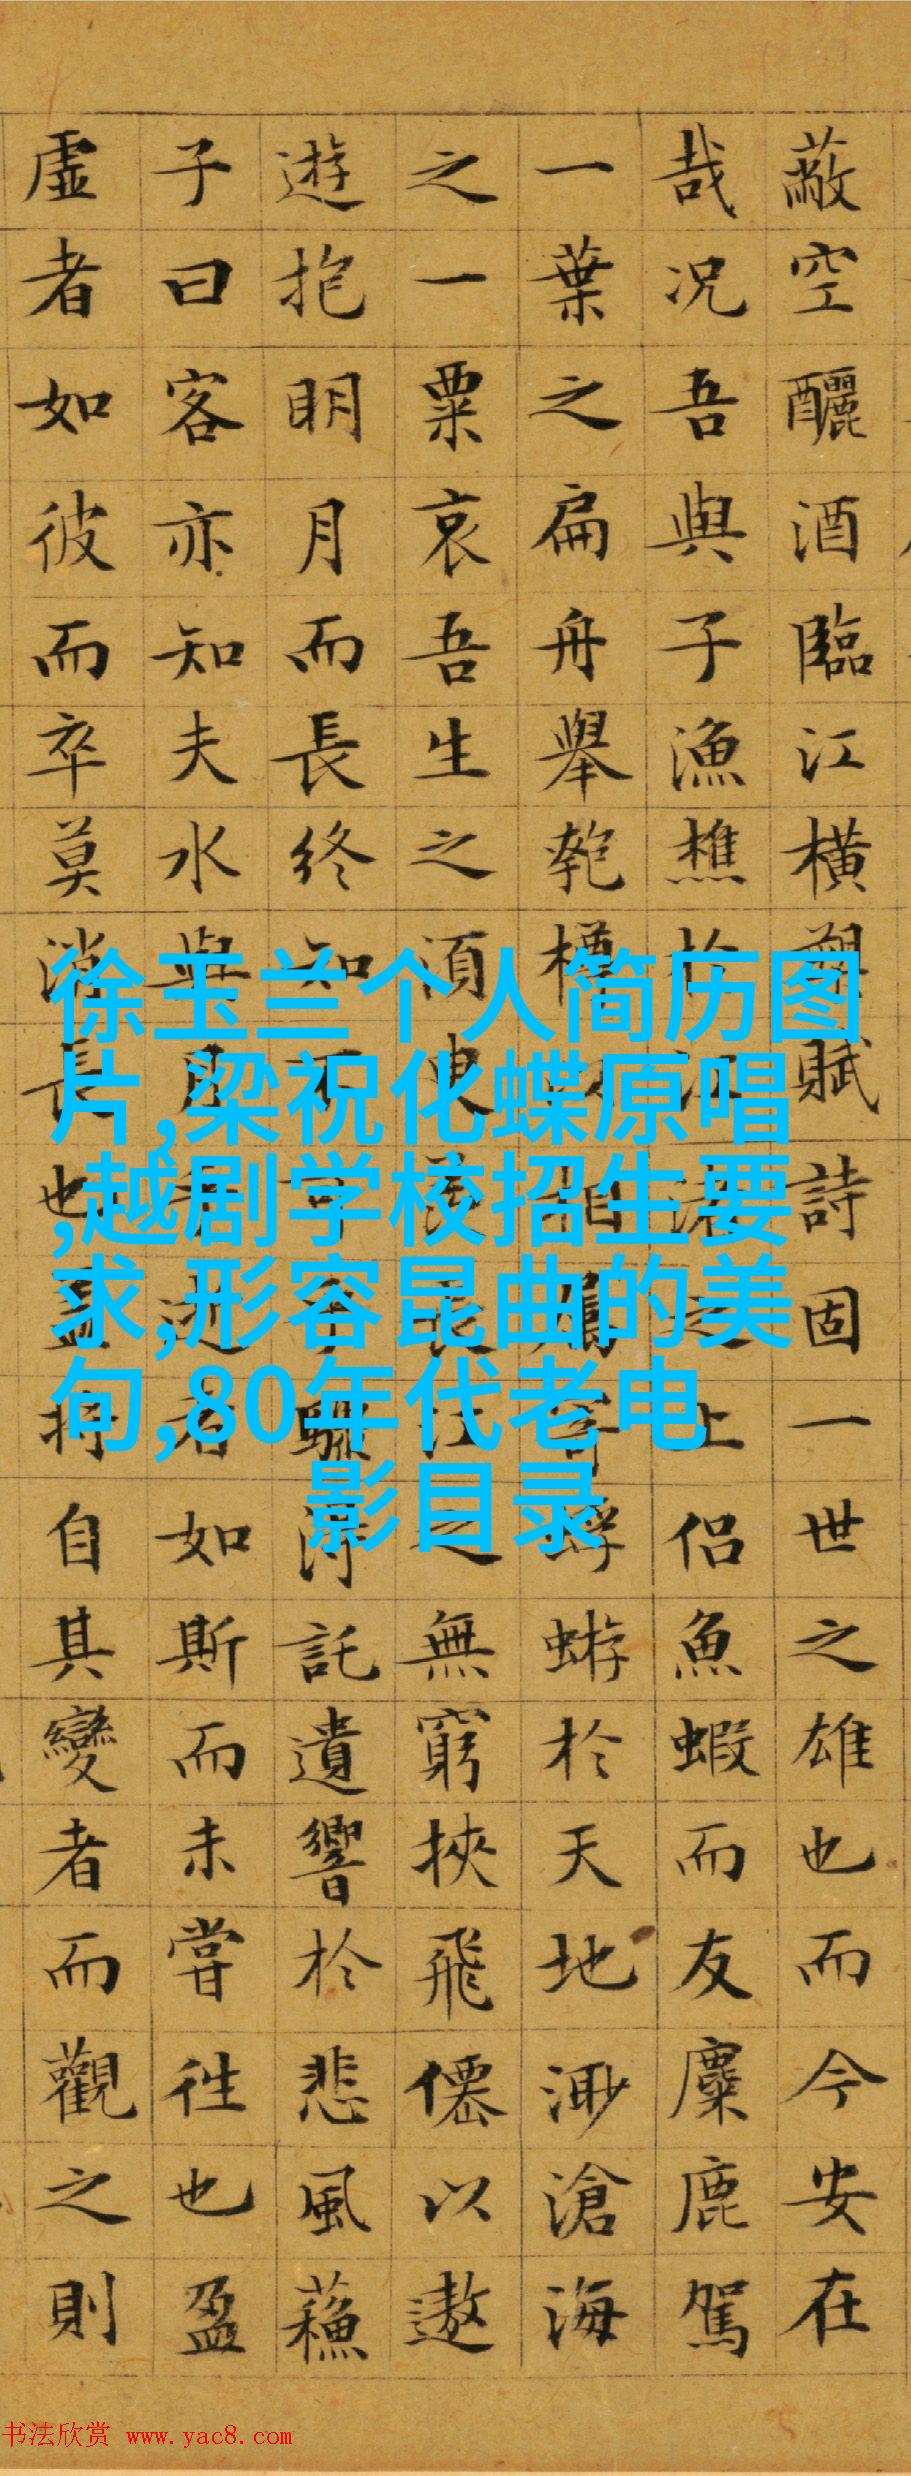 蔽空釃酒臨江橫槊賦詩固一世之雄也而今安在
哉况吾與子漁樵於江渚之上侶魚蝦而友麋鹿駕
一葉之扁舟舉匏樽以相屬寄蜉蝣於天地渺滄海
之一粟哀吾生之須臾羨長江之無窮挾飛僊以遨
遊抱明月而長終知不可乎驟得託遺響於悲風蘓
子曰客亦知夫水與月乎逝者如斯而未嘗往也盈
虛者如彼而卒莫消長也蓋將自其變者而觀之則
徐玉兰个人简历图
片,梁祝化蝶原唱
,越剧学校招生要
求,形容昆曲的美
句,80年代老电
影目录
书法欣赏 www.yac8.com